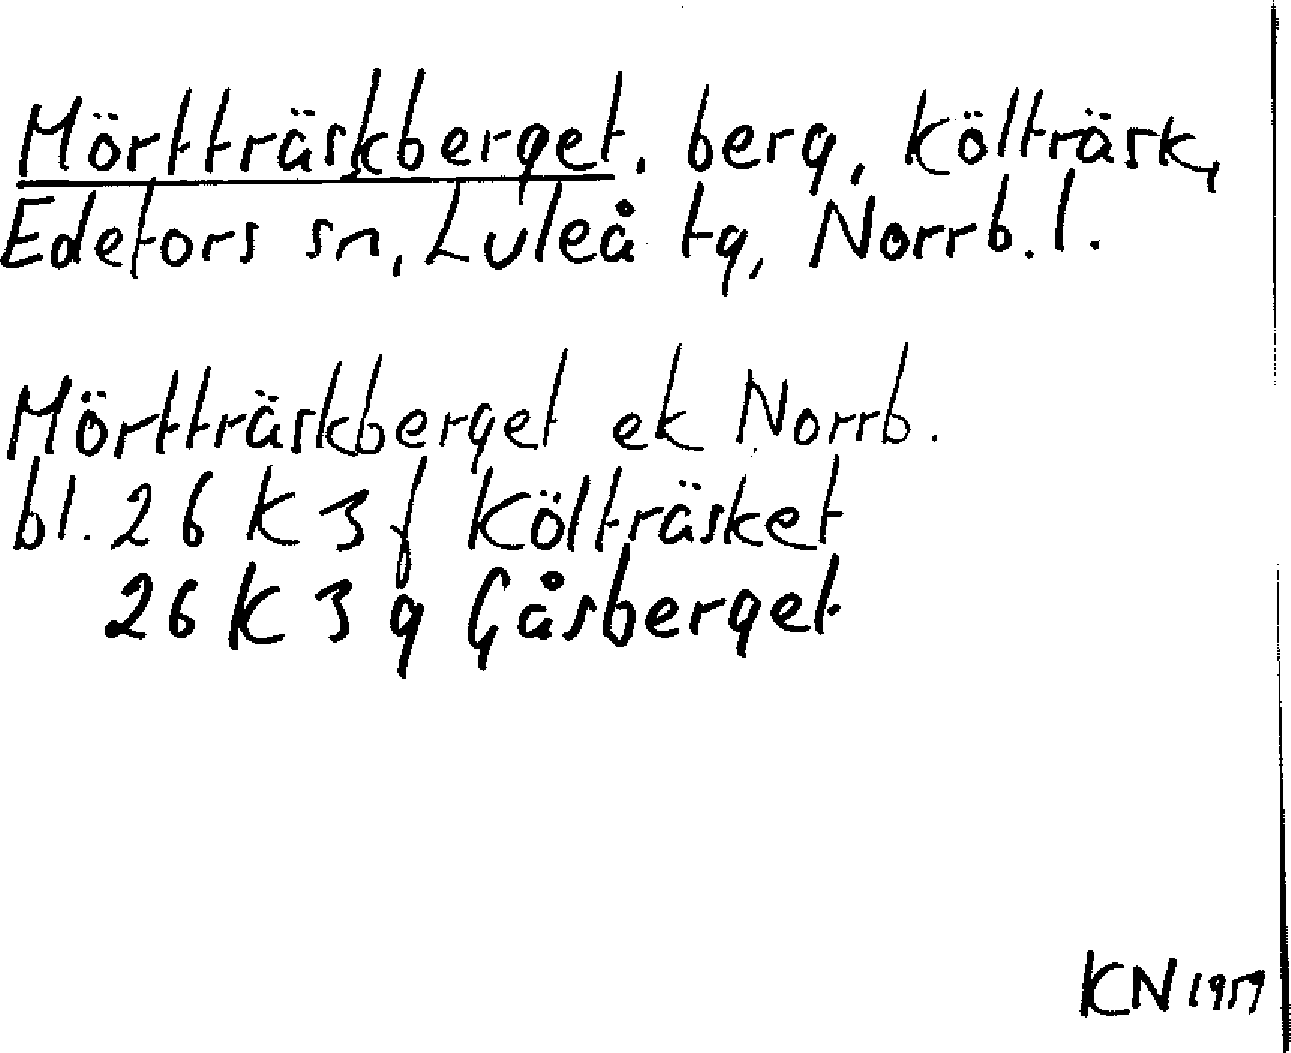 Mörtträskberget, berg, Költräsk,
Edefors sn, Luleå tg, Norrb. l.
Mörtträskberget ek Norrb.
bl. 26 K 3 f Költräsket
26 K 3 g Gåsberget
KN 1959